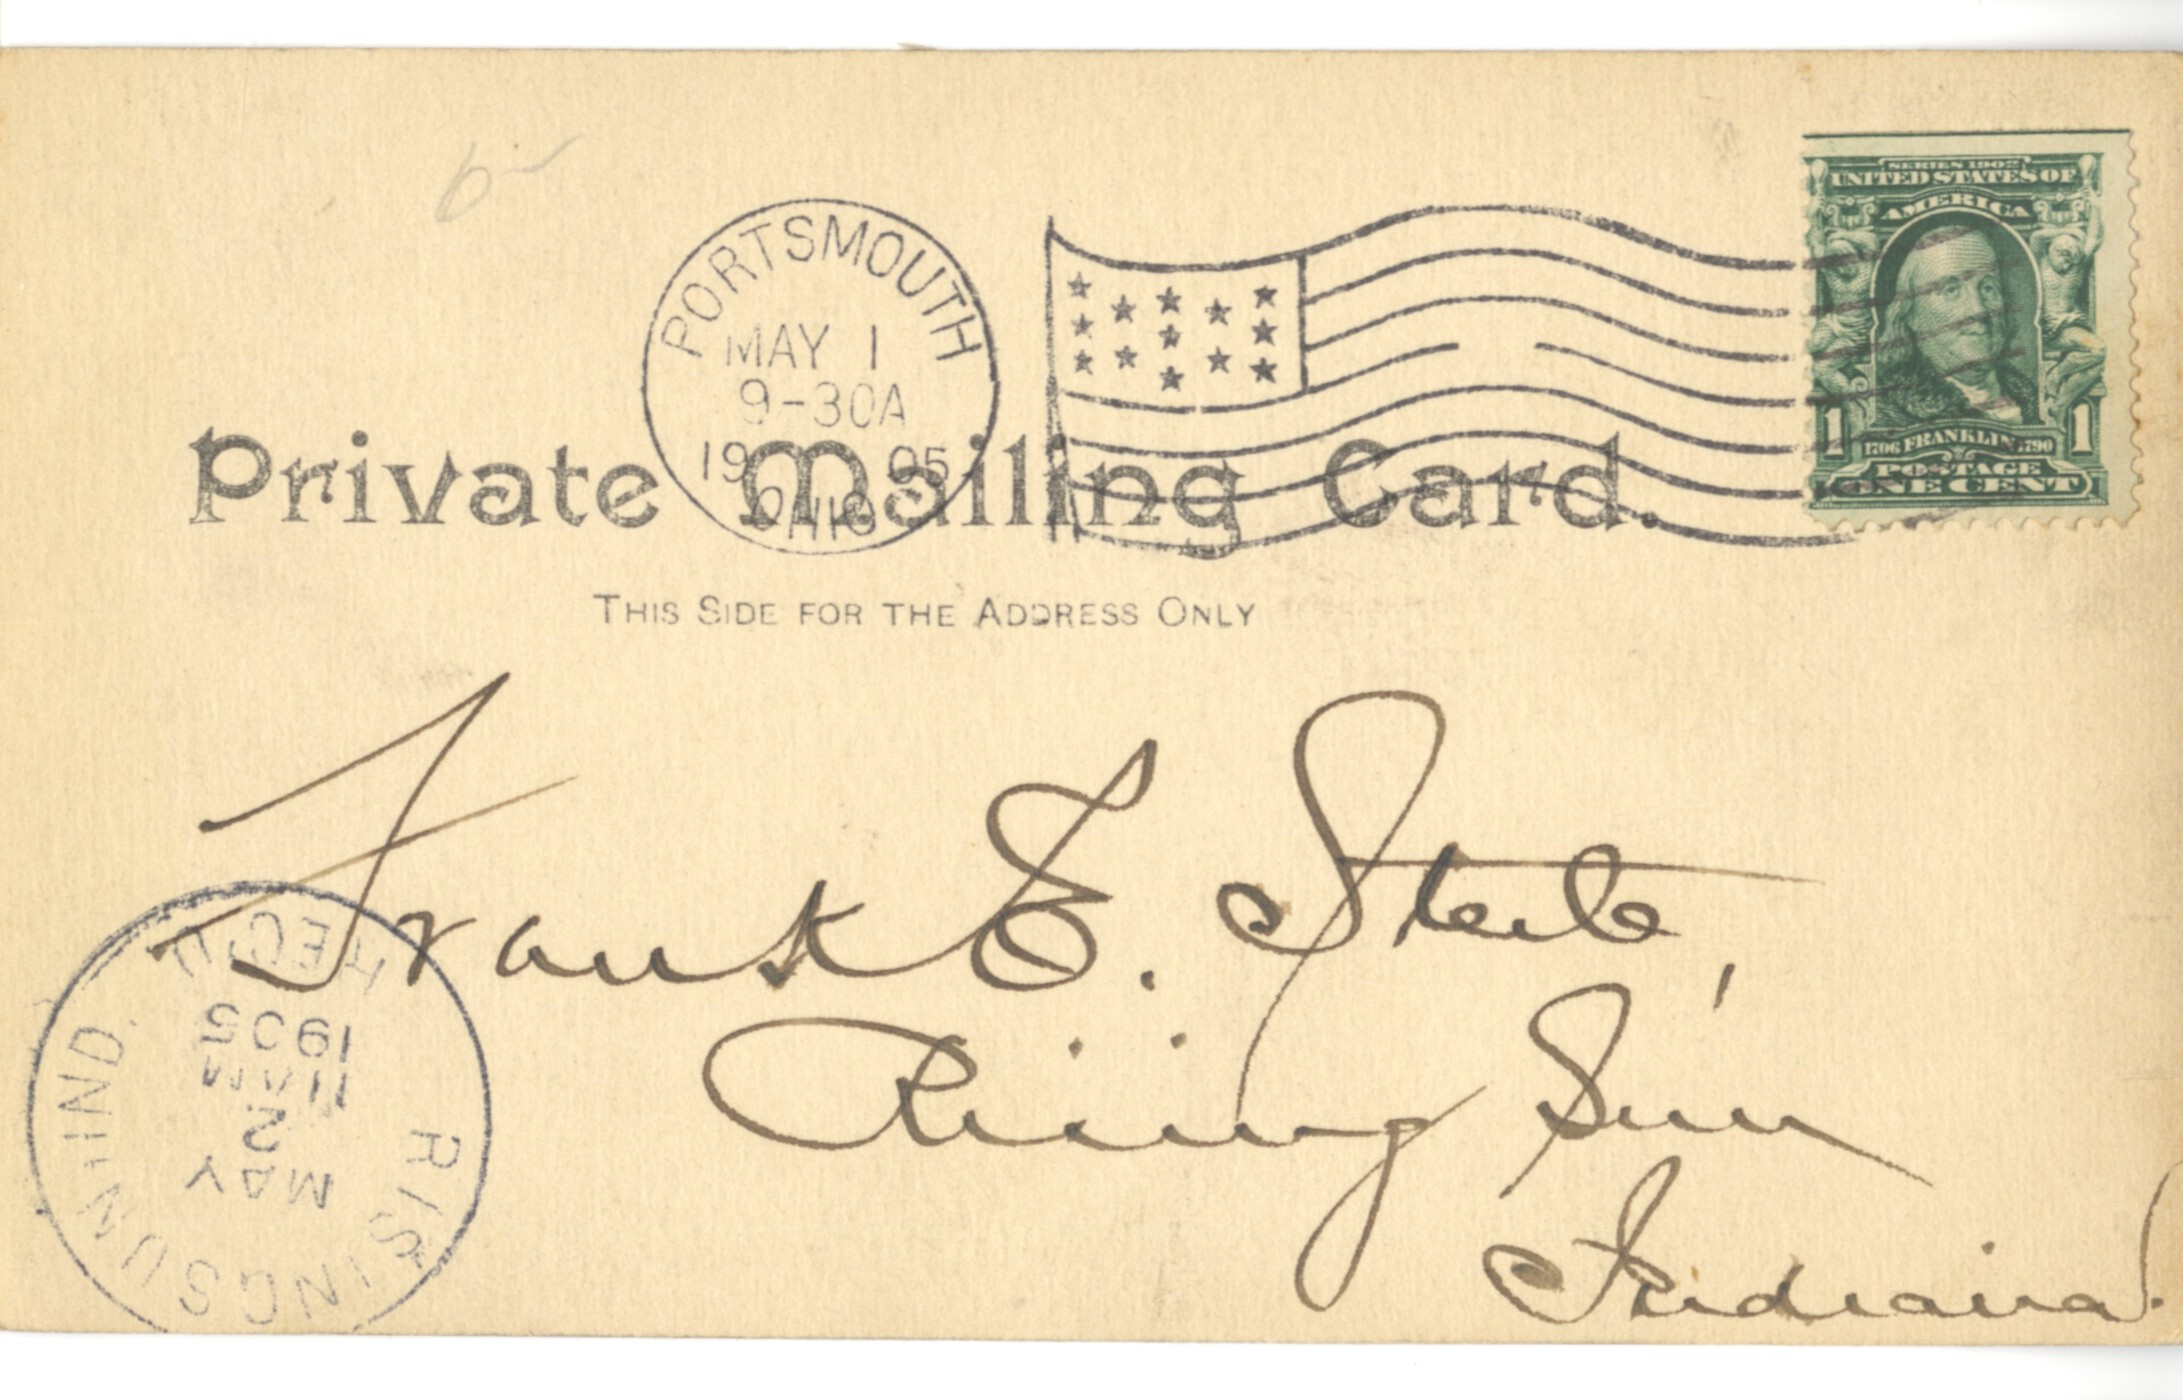 6-
PORTSMOUTH
MAY 1
9-30A
19 05
OHIO
SERIES 1902
UNITED STATES OF
AMERICA
1 1706 FRANKLIN 1790 1
POSTAGE
ONE CENT
Private Mailing Card.
THIS SIDE FOR THE ADDRESS ONLY
Frank E. Steele,
Rising Sun
Indiana.
RISING SUN, IND.
MAY
2
11AM
1905
REC'D.